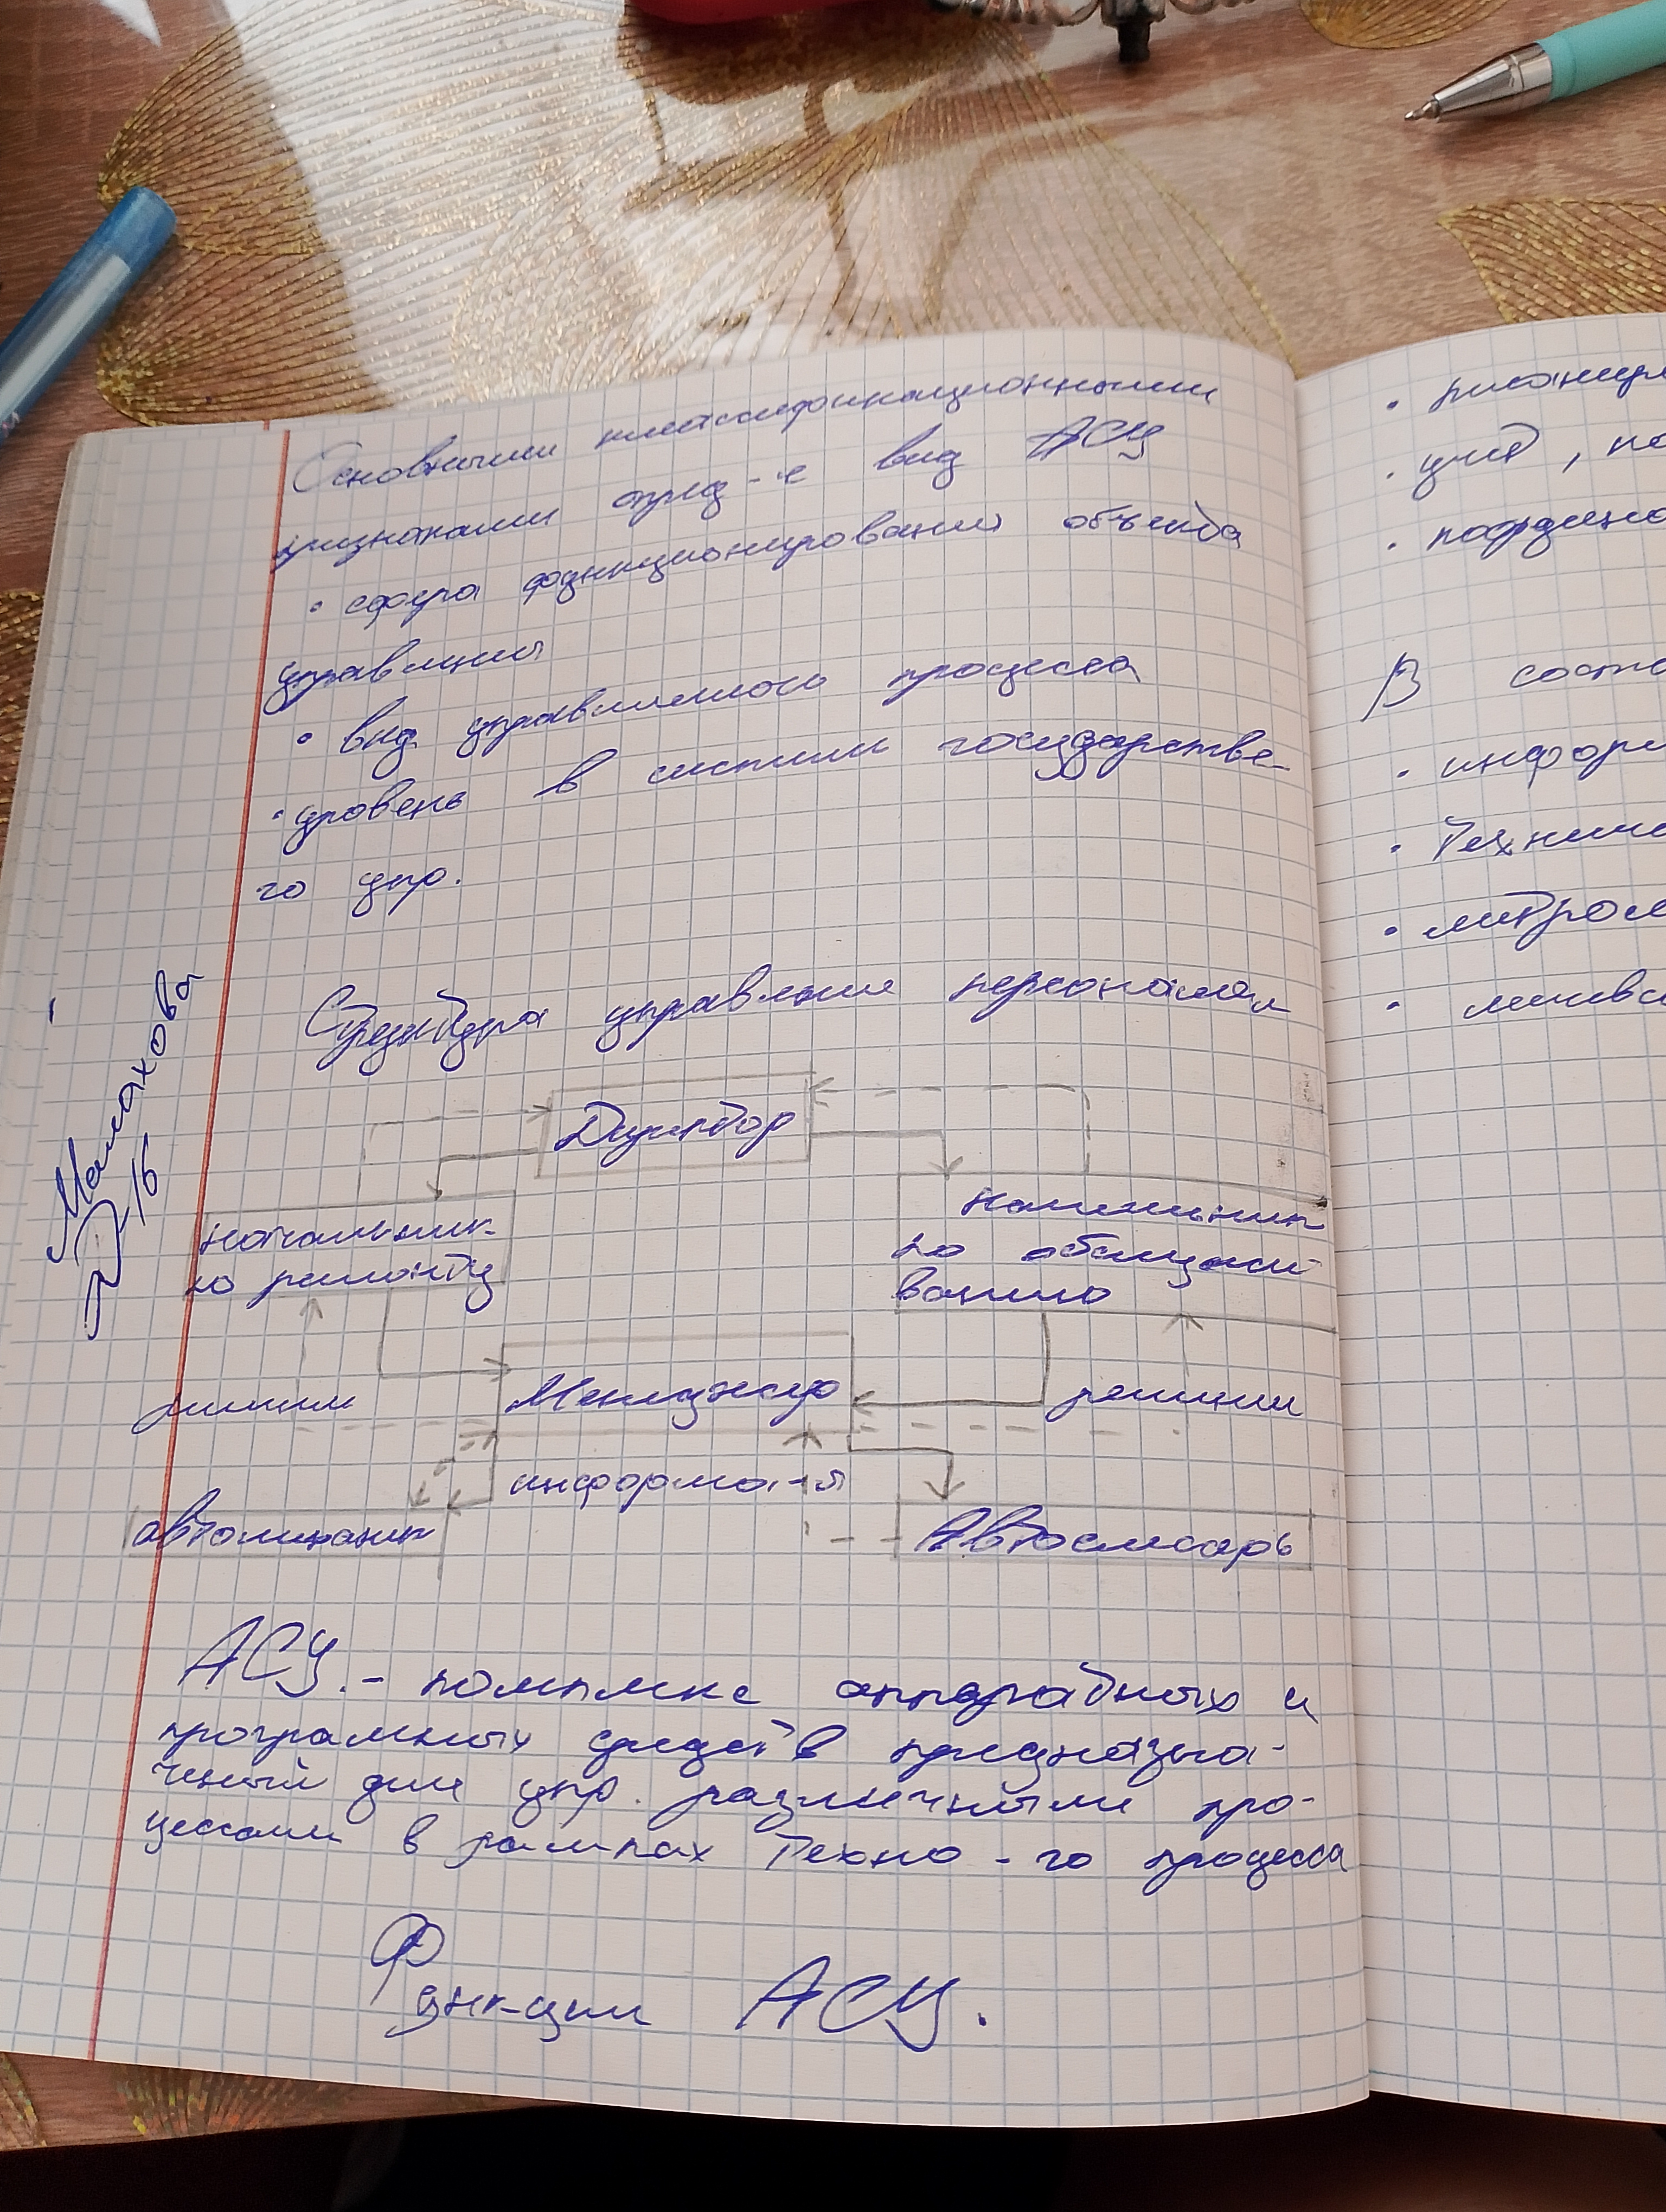 Основными классификационными
признаками опред-е вид АСУ
• сфера функционирования объекта
управления
• вид управляемого процесса
• уровень в системе государстве-
го упр.
Структура управление персоналом
Директор
начальник
по ремонту
начальник
по обслужи
ванию
Менеджер
решении
информа-я
автомеханик
Автослесарь
АСУ. - комплекс аппаратных и
програмных средств предназна-
ченый для упр. различными про-
цессами в рамках Техно-го процесса
Функ-ции АСУ.
Малахова
16
• учёт, по
В соста
• информ
• Технич